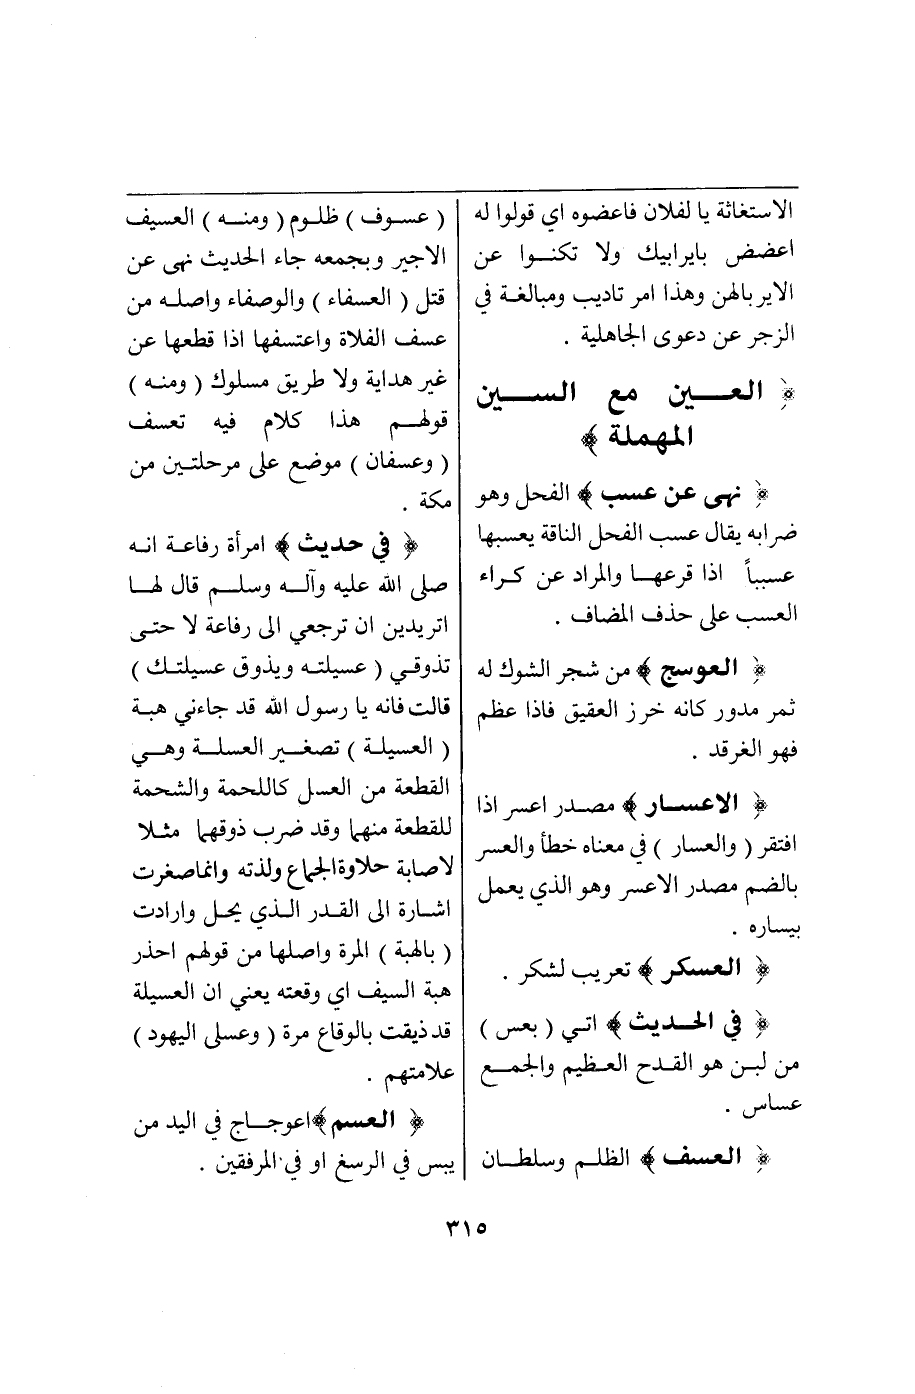 الاستغاثة يا لفلان فاعضوه اي قولوا له
اعضض بايرابيك ولا تكنوا عن
الاير بالهن وهذا امر تاديب ومبالغة في
الزجر عن دعوى الجاهلية .
﴿ العين مع السين
المهملة ﴾
﴿ نهى عن عسب ﴾ الفحل وهو
ضرابه يقال عسب الفحل الناقة يعسبها
عسباً اذا قرعها والمراد عن كراء
العسب على حذف المضاف .
﴿ العوسج ﴾ من شجر الشوك له
ثمر مدور كانه خرز العقيق فاذا عظم
فهو الغرقد .
﴿ الاعسار ﴾ مصدر اعسر اذا
افتقر ( والعسار ) في معناه خطأ والعسر
بالضم مصدر الاعسر وهو الذي يعمل
بيساره .
﴿ العسكر ﴾ تعريب لشكر .
﴿ في الحديث ﴾ اتي ( بعس )
من لبن هو القدح العظيم والجمع
عساس .
﴿ العسف ﴾ الظلم وسلطان
( عسوف ) ظلوم ( ومنه ) العسيف
الاجير وبجمعه جاء الحديث نهى عن
قتل ( العسفاء ) والوصفاء واصله من
عسف الفلاة واعتسفها اذا قطعها عن
غير هداية ولا طريق مسلوك ( ومنه )
قولهم هذا كلام فيه تعسف
( وعسفان ) موضع على مرحلتين من
مكة .
﴿ في حديث ﴾ امرأة رفاعة انه
صلى الله عليه وآله وسلم قال لها
اتريدين ان ترجعي الى رفاعة لا حتى
تذوقي ( عسيلته ويذوق عسيلتك )
قالت فانه يا رسول الله قد جاءني هبة
( العسيلة ) تصغير العسلة وهي
القطعة من العسل كاللحمة والشحمة
للقطعة منهما وقد ضرب ذوقهما مثلا
لاصابة حلاوة الجماع ولذته وانما صغرت
اشارة الى القدر الذي يحل وارادت
( بالهبة ) المرة واصلها من قولهم احذر
هبة السيف اي وقعته يعني ان العسيلة
قد ذيقت بالوقاع مرة ( وعسلى اليهود )
علامتهم .
﴿ العسم ﴾ اعوجاج في اليد من
يبس في الرسغ او في المرفقين .
٣١٥